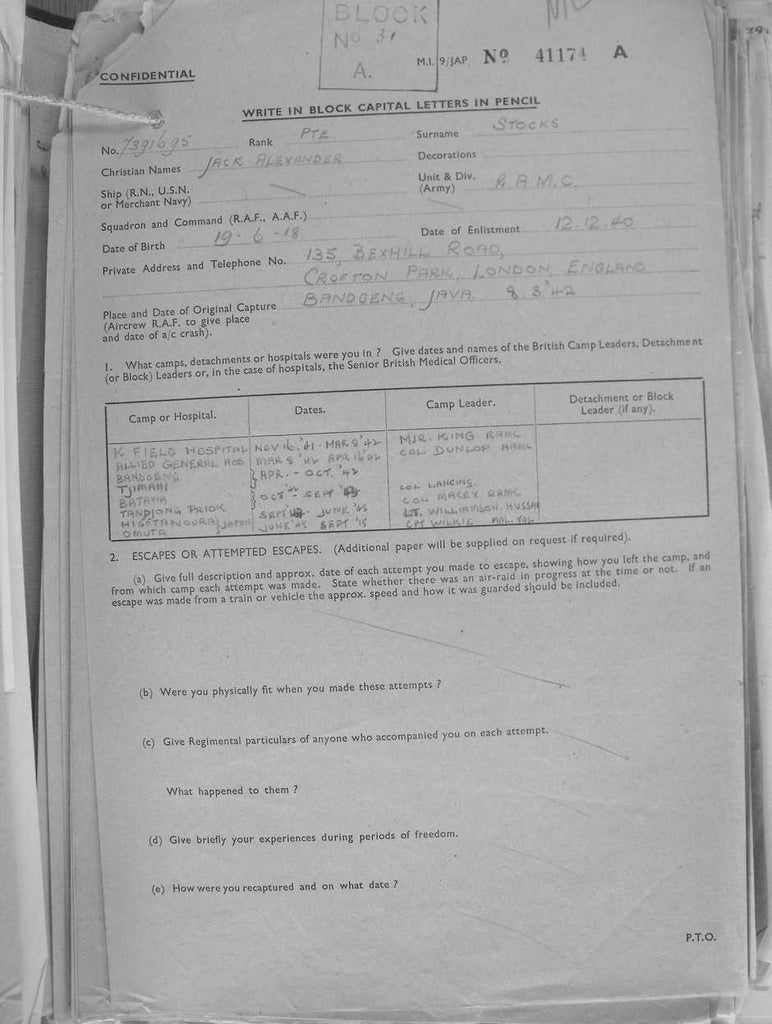 BLOCK
No 31
A.
M.I. 9/JAP. No 41174 A
CONFIDENTIAL
WRITE IN BLOCK CAPITAL LETTERS IN PENCIL
No. 7391695 Rank PTE Surname STOCKS
Christian Names JACK ALEXANDER Decorations
Ship (R.N., U.S.N. or Merchant Navy) Unit & Div. (Army) R.A.M.C.
Squadron and Command (R.A.F., A.A.F.)
Date of Birth 19-6-18 Date of Enlistment 12.12.40
Private Address and Telephone No. 135, BEXHILL ROAD,
CROFTON PARK, LONDON, ENGLAND
Place and Date of Original Capture BANDOENG, JAVA. 8.3.'42
(Aircrew R.A.F. to give place
and date of a/c crash).
1. What camps, detachments or hospitals were you in ? Give dates and names of the British Camp Leaders, Detachment
(or Block) Leaders or, in the case of hospitals, the Senior British Medical Officers.
Camp or Hospital. Dates. Camp Leader. Detachment or Block Leader (if any).
K FIELD HOSPITAL NOV 16.'41 - MAR 8 '42 MJR. KING RAMC
ALLIED GENERAL HOS. MAR 8 '42 APR 16 '42 COL DUNLOP AAMC
BANDOENG
TJIMAHI APR. - OCT. '42 COL LANCING.
BATAVIA OCT SEPT COL MACEY RAMC
TANDJONG PRIOK SEPT JUNE '45 LT. WILLIAMSON. HUSSAR
OMUTA JUNE '45 SEPT CPT WILKIE
2. ESCAPES OR ATTEMPTED ESCAPES. (Additional paper will be supplied on request if required).
(a) Give full description and approx. date of each attempt you made to escape, showing how you left the camp, and
from which camp each attempt was made. State whether there was an air-raid in progress at the time or not. If an
escape was made from a train or vehicle the approx. speed and how it was guarded should be included.
(b) Were you physically fit when you made these attempts ?
(c) Give Regimental particulars of anyone who accompanied you on each attempt.
What happened to them ?
(d) Give briefly your experiences during periods of freedom.
(e) How were you recaptured and on what date ?
P.T.O.